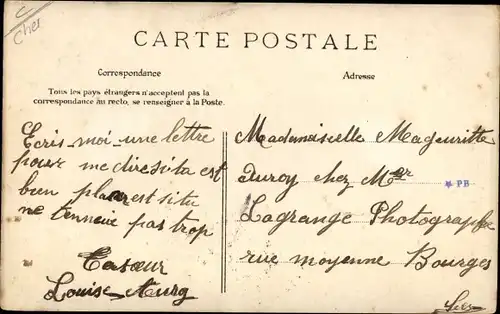 Cher
CARTE POSTALE
Correspondance
Tous les pays étrangers n'acceptent pas la
correspondance au recto, se renseigner à la Poste.
Ecris-moi-une lettre
pour me dire si ta est
bien placer est si tu
ne t'ennuie pas trop
Ta sœur
Louise
Adresse
Mademoiselle Magueritte
chez Mer
PB
Lagrange Photographe
rue moyenne Bourges